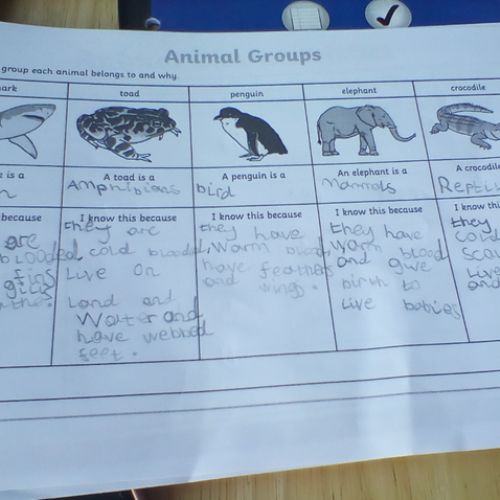 Animal Groups
group each animal belongs to and why.
ark toad penguin elephant crocodile
is a A toad is a A penguin is a An elephant is a A crocodile
n Amphibians bird mammals Repti
because I know this because I know this because I know this because I know this
are they are they have they have they
blooded, cold blooded, Warm blood, warm blood cold
fins Live On have feathers and give
gills and wings. birth to Live
Land and Live babies and
Water and
have webbed
feet.